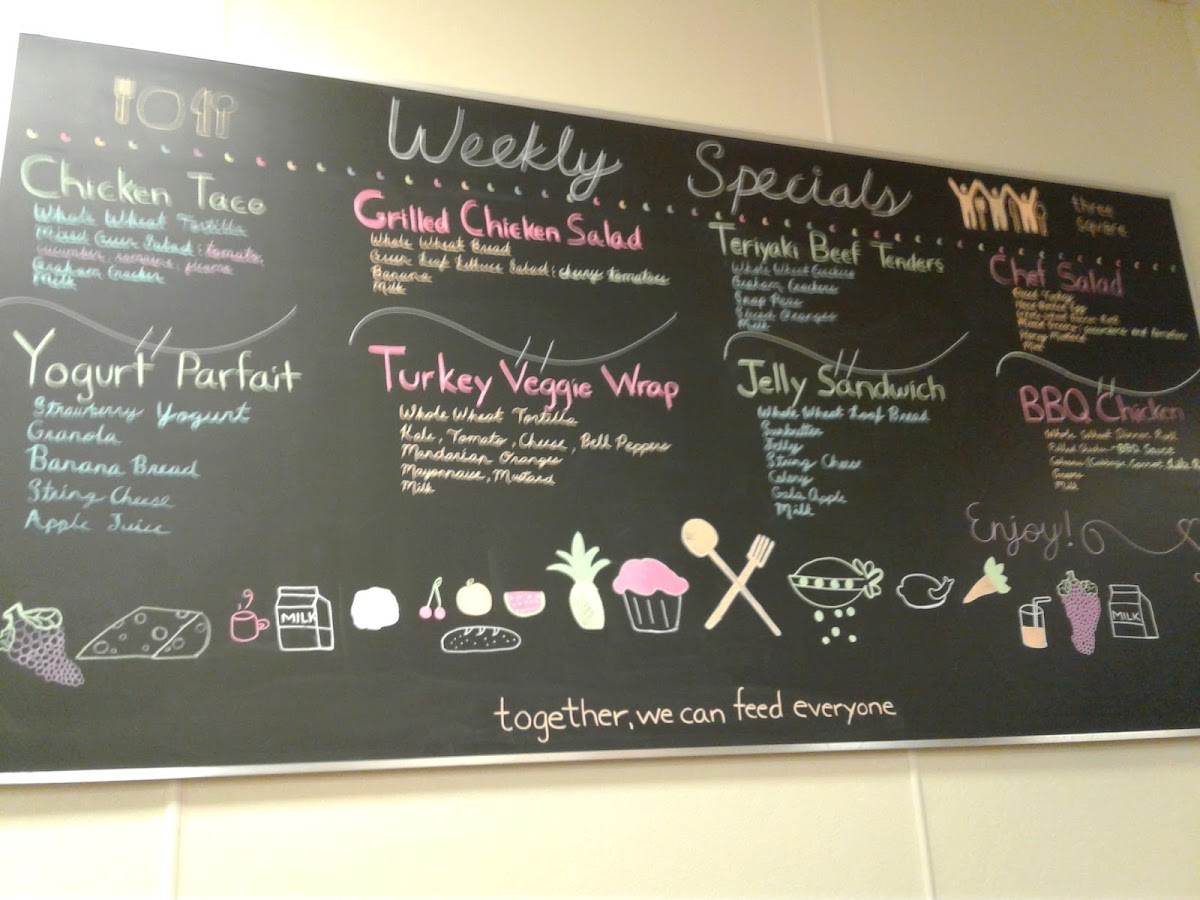 Weekly Specials
three
square
Chicken Taco
Whole Wheat Tortilla
Mixed Green Salad: tomato,
cucumber, romaine,
Graham Cracker
Milk
Grilled Chicken Salad
Whole Wheat Bread
Green Leaf Lettuce Salad: cherry tomatoes
Banana
Milk
Teriyaki Beef Tenders
Whole Wheat Crackers
Graham Crackers
Snap Peas
Sliced Oranges
Milk
Chef Salad
Diced Turkey
Milk
Yogurt Parfait
Strawberry Yogurt
Granola
Banana Bread
String Cheese
Apple Juice
Turkey Veggie Wrap
Whole Wheat Tortilla
Kale, Tomato, Cheese, Bell Peppers
Mandarian Oranges
Mayonnaise, Mustard
Milk
Jelly Sandwich
Whole Wheat Loaf Bread
Sunbutter
Jelly
String Cheese
Celery
Gala Apple
Milk
BBQ Chicken
Whole Wheat Dinner Roll
Pulled Chicken - BBQ Sauce
Milk
Enjoy!
MILK
MILK
together, we can feed everyone